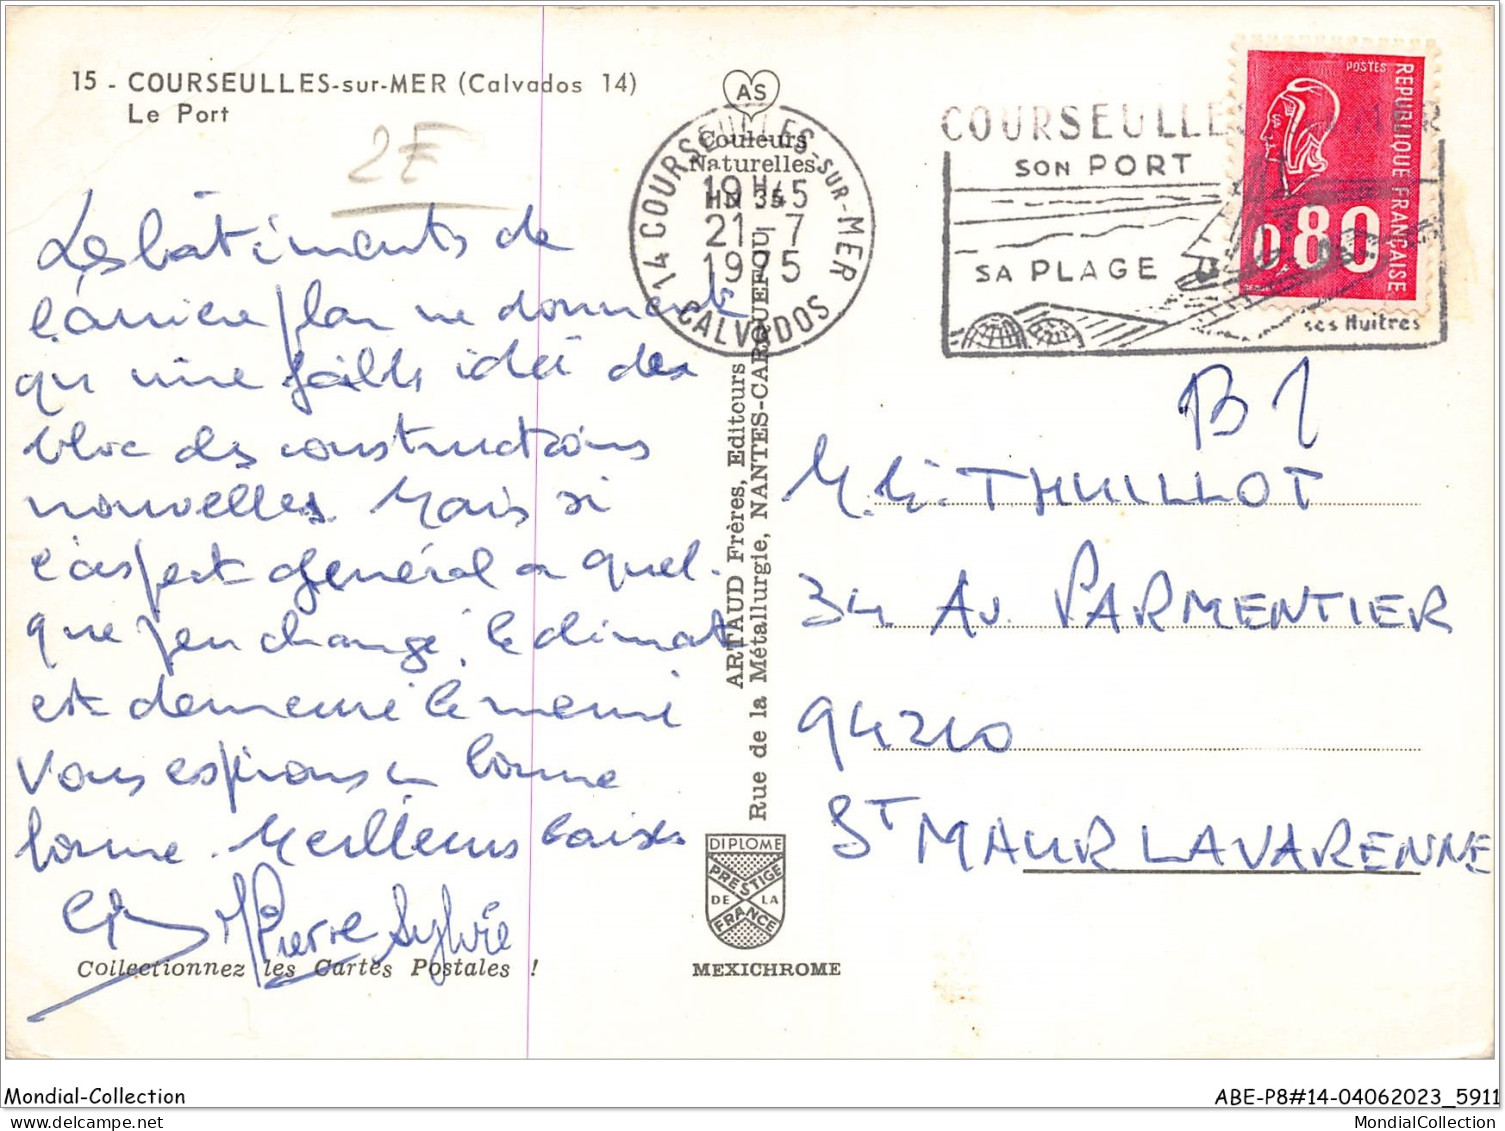 15 - COURSEULLES-sur-MER (Calvados 14)
Le Port
2E
AS
Couleurs
Naturelles
HN 35
14 COURSEULLES-SUR-MER
19H45
21-7
1975
CALVADOS
COURSEULLES
SON PORT
SA PLAGE
ses Huitres
POSTES
REPUBLIQUE FRANÇAISE
0,80
Les bâtiments de
l'arrière plan ne donnent
qu'une faible idée des
bloc des constructions
nouvelles. Mais si
l'aspect général a quel-
que peu changé, le climat
est demeuré le même
Vous espérons en bonne
forme. Meilleurs baisers
Pierre Sylvie
Collectionnez les Cartes Postales !
ARTAUD Frères, Editeurs
Rue de la Métallurgie, NANTES-CARQUEFOU
DIPLOME
PRESTIGE
DE LA
FRANCE
MEXICHROME
B1
THUILLOT
34 AV. PARMENTIER
94210
ST MAUR LAVARENNE
Mondial-Collection
ABE-P8#14-04062023_5911
delcampe.net
MondialCollection